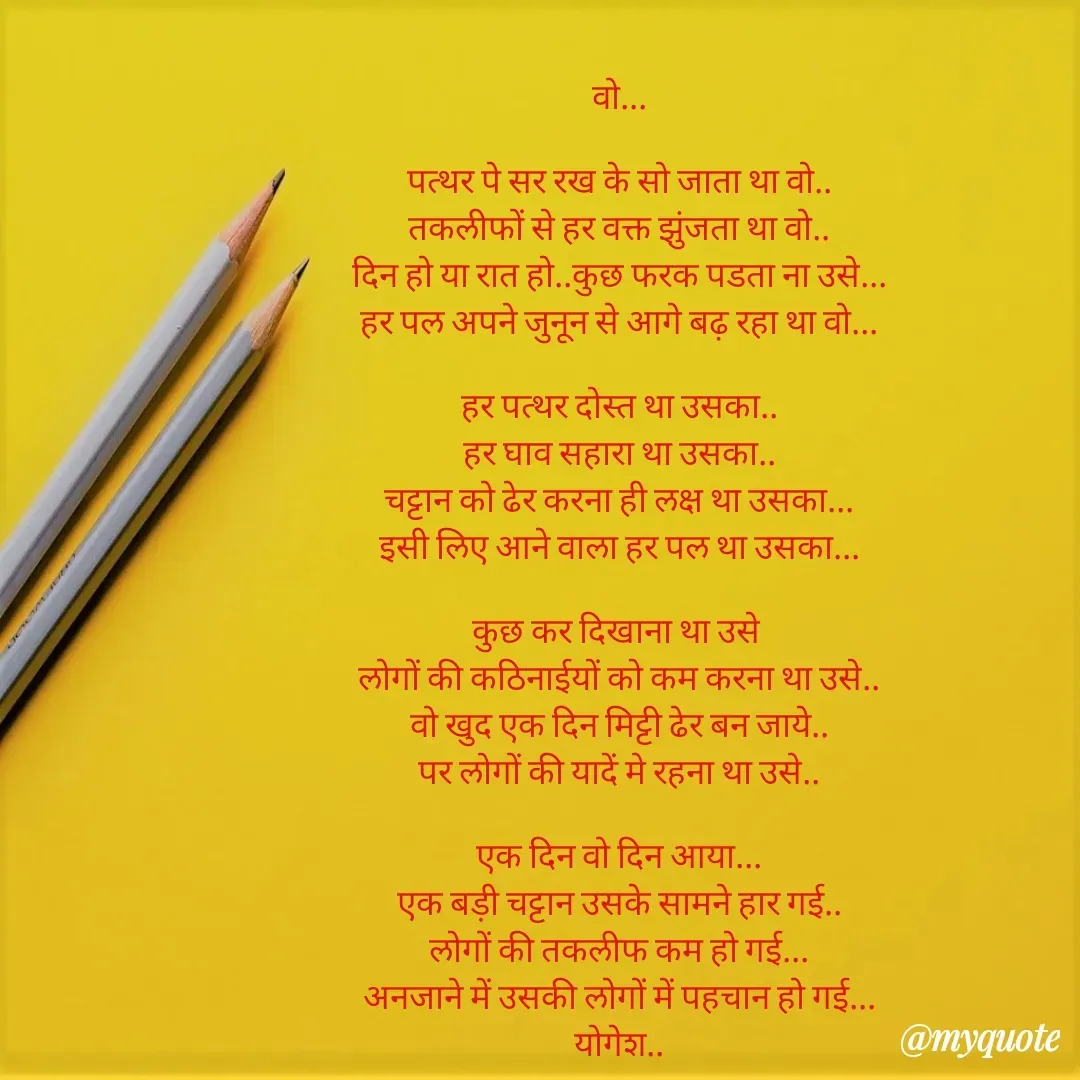 वो...
पत्थर पे सर रख के सो जाता था वो..
तकलीफों से हर वक्त झुंजता था वो..
दिन हो या रात हो..कुछ फरक पडता ना उसे...
हर पल अपने जुनून से आगे बढ़ रहा था वो...
हर पत्थर दोस्त था उसका..
हर घाव सहारा था उसका..
चट्टान को ढेर करना ही लक्ष था उसका...
इसी लिए आने वाला हर पल था उसका...
कुछ कर दिखाना था उसे
लोगों की कठिनाईयों को कम करना था उसे..
वो खुद एक दिन मिट्टी ढेर बन जाये..
पर लोगों की यादें मे रहना था उसे..
एक दिन वो दिन आया...
एक बड़ी चट्टान उसके सामने हार गई..
लोगों की तकलीफ कम हो गई...
अनजाने में उसकी लोगों में पहचान हो गई...
योगेश..
@myquote